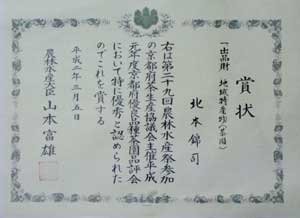 賞状
一、出品財 地域特産物(茶園)
北本錦司
右は第二十九回農林水産祭参加
の京都府茶生産協議会主催平成
元年度京都府優良品種茶園品評会
において特に優秀と認められた
のでこれを賞する
平成二年三月五日
農林水産大臣 山本富雄